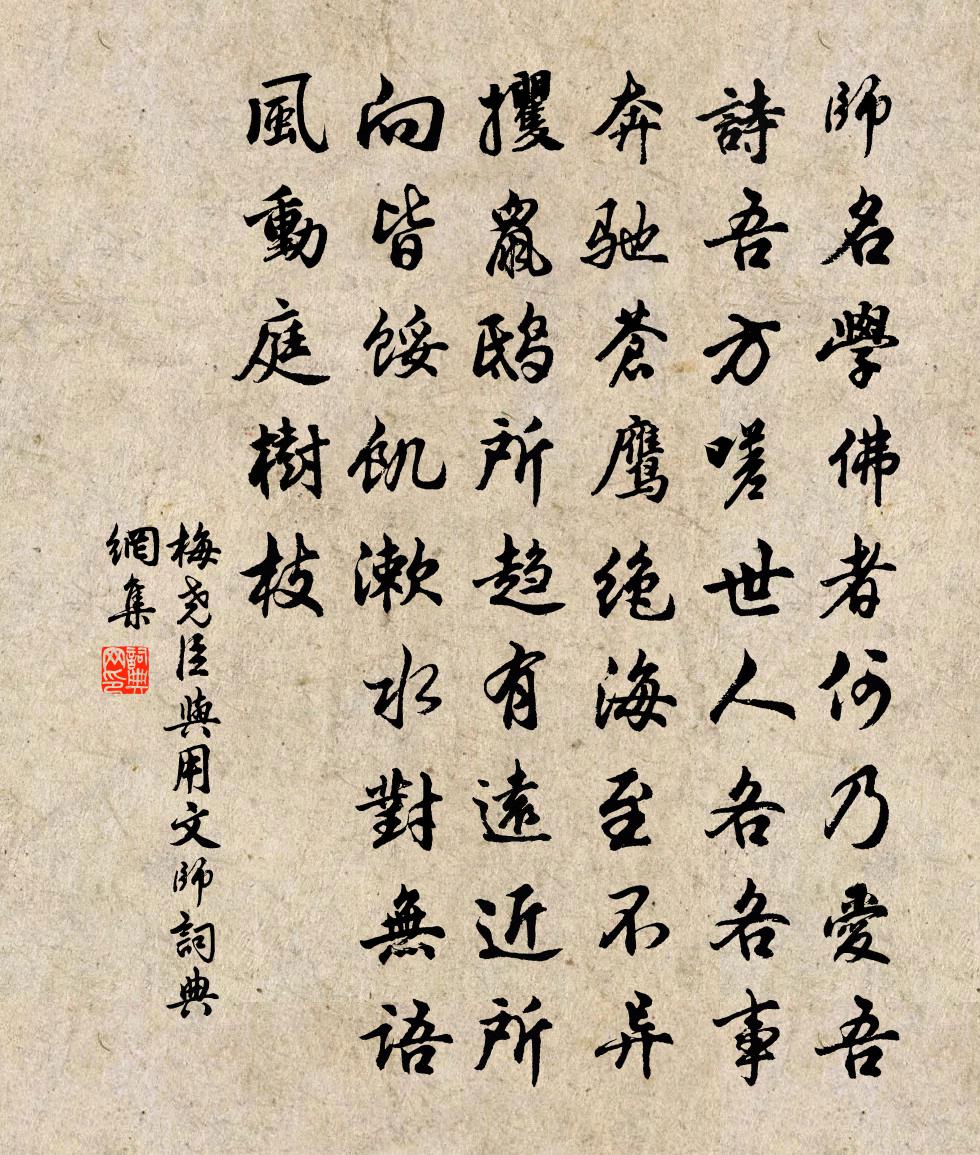 師名學佛者何乃愛吾
詩吾方嗟世人各各事
奔馳蒼鷹絶海至不异
攫鼠鴟所趋有遠近所
向皆餒飢漱水對無語
風動庭樹枝
梅尧臣與用文師詞典
網集
詞典
网印